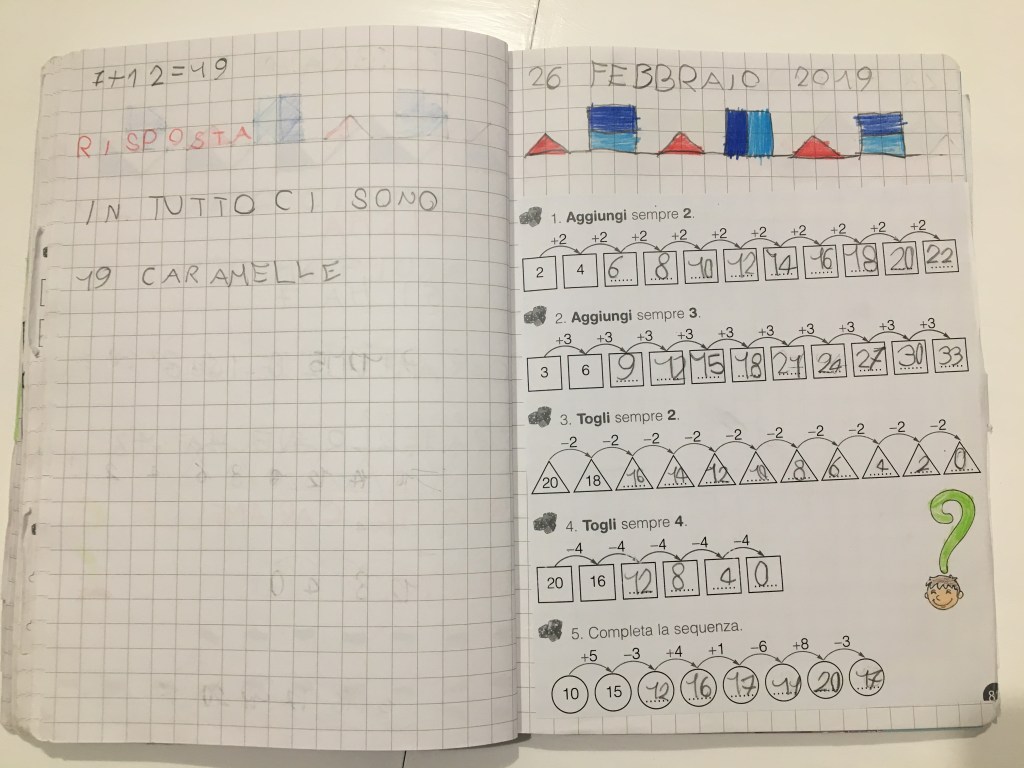 7+12=19
RISPOSTA
IN TUTTO CI SONO
19 CARAMELLE
26 FEBBRAIO 2019
1. Aggiungi sempre 2.
+2 +2 +2 +2 +2 +2 +2 +2 +2 +2
2 4 6 8 10 12 14 16 18 20 22
2. Aggiungi sempre 3.
+3 +3 +3 +3 +3 +3 +3 +3 +3 +3
3 6 9 12 15 18 21 24 27 30 33
3. Togli sempre 2.
−2 −2 −2 −2 −2 −2 −2 −2 −2 −2
20 18 16 14 12 10 8 6 4 2 0
4. Togli sempre 4.
−4 −4 −4 −4 −4
20 16 12 8 4 0
5. Completa la sequenza.
+5 −3 +4 +1 −6 +8 −3
10 15 12 16 17 11 20 17